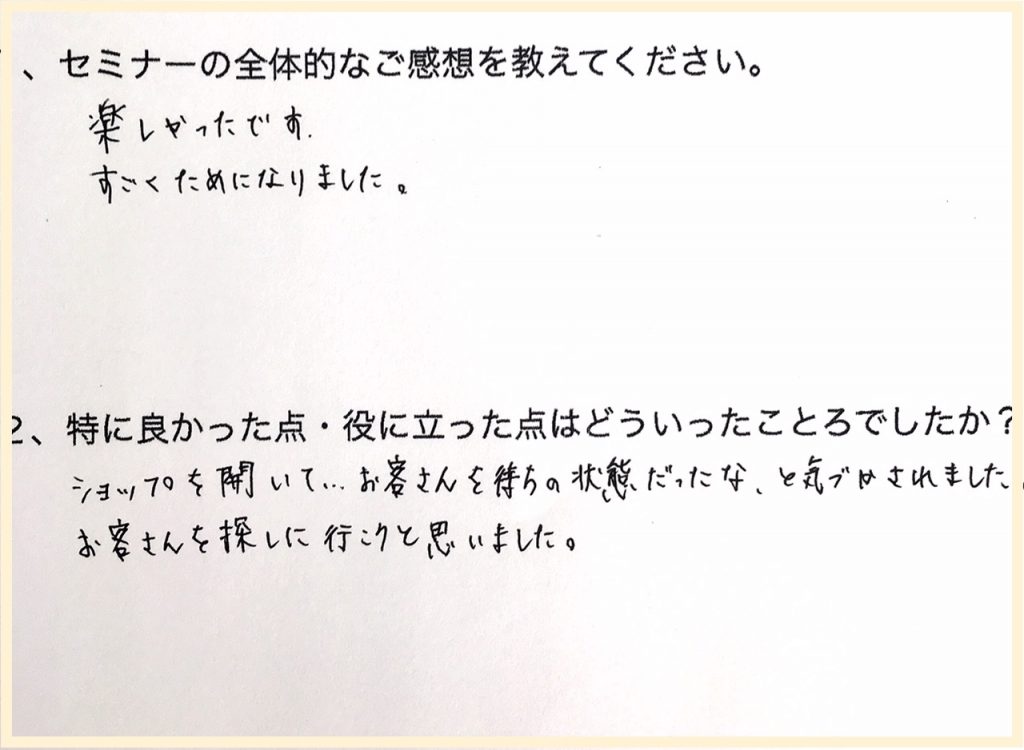 、セミナーの全体的なご感想を教えてください。
楽しかったです.
すごくためになりました。
2、特に良かった点・役に立った点はどういったことろでしたか?
ショップを開いて…お客さんを待ちの状態だったな、と気づかされました。
お客さんを探しに行こうと思いました。